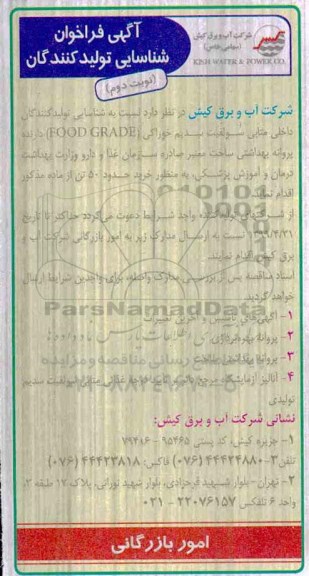 آگهی فراخوان
شناسایی تولیدکنندگان
(نوبت دوم)
شرکت آب و برق کیش
(سهامی خاص)
KISH WATER & POWER CO.
شرکت آب و برق کیش در نظر دارد نسبت به شناسایی تولیدکنندگان
داخلی متابی سولفیت سدیم خوراکی (FOOD GRADE) دارنده
پروانه بهداشتی ساخت معتبر صادره سازمان غذا و دارو وزارت بهداشت
درمان و آموزش پزشکی، به منظور خرید حدود ۵۰ تن از ماده مذکور
اقدام نماید
از شرکت‌های تولیدکننده واجد شرایط دعوت می‌گردد حداکثر تا تاریخ
نسبت به ارسال مدارک زیر به امور بازرگانی شرکت آب و
برق کیش اقدام نمایند.
اسناد مناقصه پس از بررسی مدارک واصله، برای واجدین شرایط ارسال
خواهد گردید.
۱- آگهی‌های تاسیس و آخرین تغییرات
۲- پروانه بهره‌برداری
۳- پروانه بهداشتی ساخت
۴- آنالیز آزمایشگاه مرجع متابی سولفیت سدیم
تولیدی
نشانی شرکت آب و برق کیش:
۱- جزیره کیش، کد پستی ۹۵۴۶۵-۷۹۴۱۶
تلفن ۳-۴۴۴۲۴۸۸۰ (۰۷۶) فاکس: ۴۴۴۲۳۸۱۸ (۰۷۶)
۲- تهران- بلوار شهید فرحزادی، بلوار شهید نورانی، پلاک ۱۷ طبقه ۳،
واحد ۶ تلفکس ۲۲۰۷۶۱۵۷ - ۰۲۱
امور بازرگانی
ParsNamadData